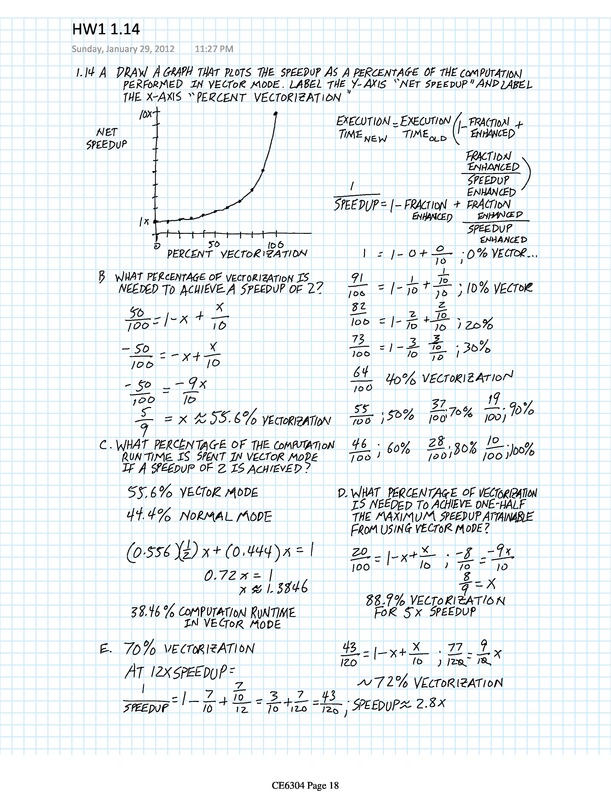 HW1 1.14
Sunday, January 29, 2012 11:27 PM
1.14 A DRAW A GRAPH THAT PLOTS THE SPEEDUP AS A PERCENTAGE OF THE COMPUTATION
PERFORMED IN VECTOR MODE. LABEL THE Y-AXIS "NET SPEEDUP" AND LABEL
THE X-AXIS "PERCENT VECTORIZATION"
10x
NET
SPEEDUP
1x
0 50 100
PERCENT VECTORIZATION
EXECUTION TIME NEW = EXECUTION TIME OLD (1 - FRACTION ENHANCED +
FRACTION ENHANCED / SPEEDUP ENHANCED)
1/SPEEDUP = 1 - FRACTION ENHANCED + FRACTION ENHANCED / SPEEDUP ENHANCED
1 = 1 - 0 + 0/10 ; 0% VECTOR...
91/100 = 1 - 1/10 + 1/10/10 ; 10% VECTOR
82/100 = 1 - 2/10 + 2/10/10 ; 20%
73/100 = 1 - 3/10 3/10/10 ; 30%
64/100 40% VECTORIZATION
55/100 ; 50% 37/100 ; 70% 19/100 ; 90%
46/100 ; 60% 28/100 ; 80% 10/100 ; 100%
B WHAT PERCENTAGE OF VECTORIZATION IS
NEEDED TO ACHIEVE A SPEEDUP OF 2?
50/100 = 1 - x + x/10
-50/100 = -x + x/10
-50/100 = -9x/10
5/9 = x ≈ 55.6% VECTORIZATION
C. WHAT PERCENTAGE OF THE COMPUTATION
RUN TIME IS SPENT IN VECTOR MODE
IF A SPEEDUP OF 2 IS ACHIEVED?
55.6% VECTOR MODE
44.4% NORMAL MODE
(0.556)(1/2)x + (0.444)x = 1
0.72x = 1
x ≈ 1.3846
38.46% COMPUTATION RUNTIME
IN VECTOR MODE
D. WHAT PERCENTAGE OF VECTORIZATION
IS NEEDED TO ACHIEVE ONE-HALF
THE MAXIMUM SPEEDUP ATTAINABLE
FROM USING VECTOR MODE?
20/100 = 1 - x + x/10 ; -8/10 = -9x/10
8/9 = x
88.9% VECTORIZATION
FOR 5x SPEEDUP
E. 70% VECTORIZATION
AT 12X SPEEDUP =
1/SPEEDUP = 1 - 7/10 + 7/10/12 = 3/10 + 7/120 = 43/120 ; SPEEDUP ≈ 2.8x
43/120 = 1 - x + x/10 ; 77/120 = 9/10 x
~72% VECTORIZATION
CE6304 Page 18